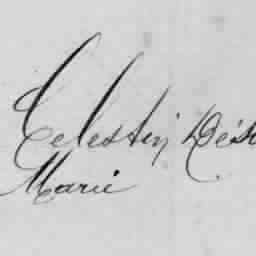 Celestin Dés
Marie